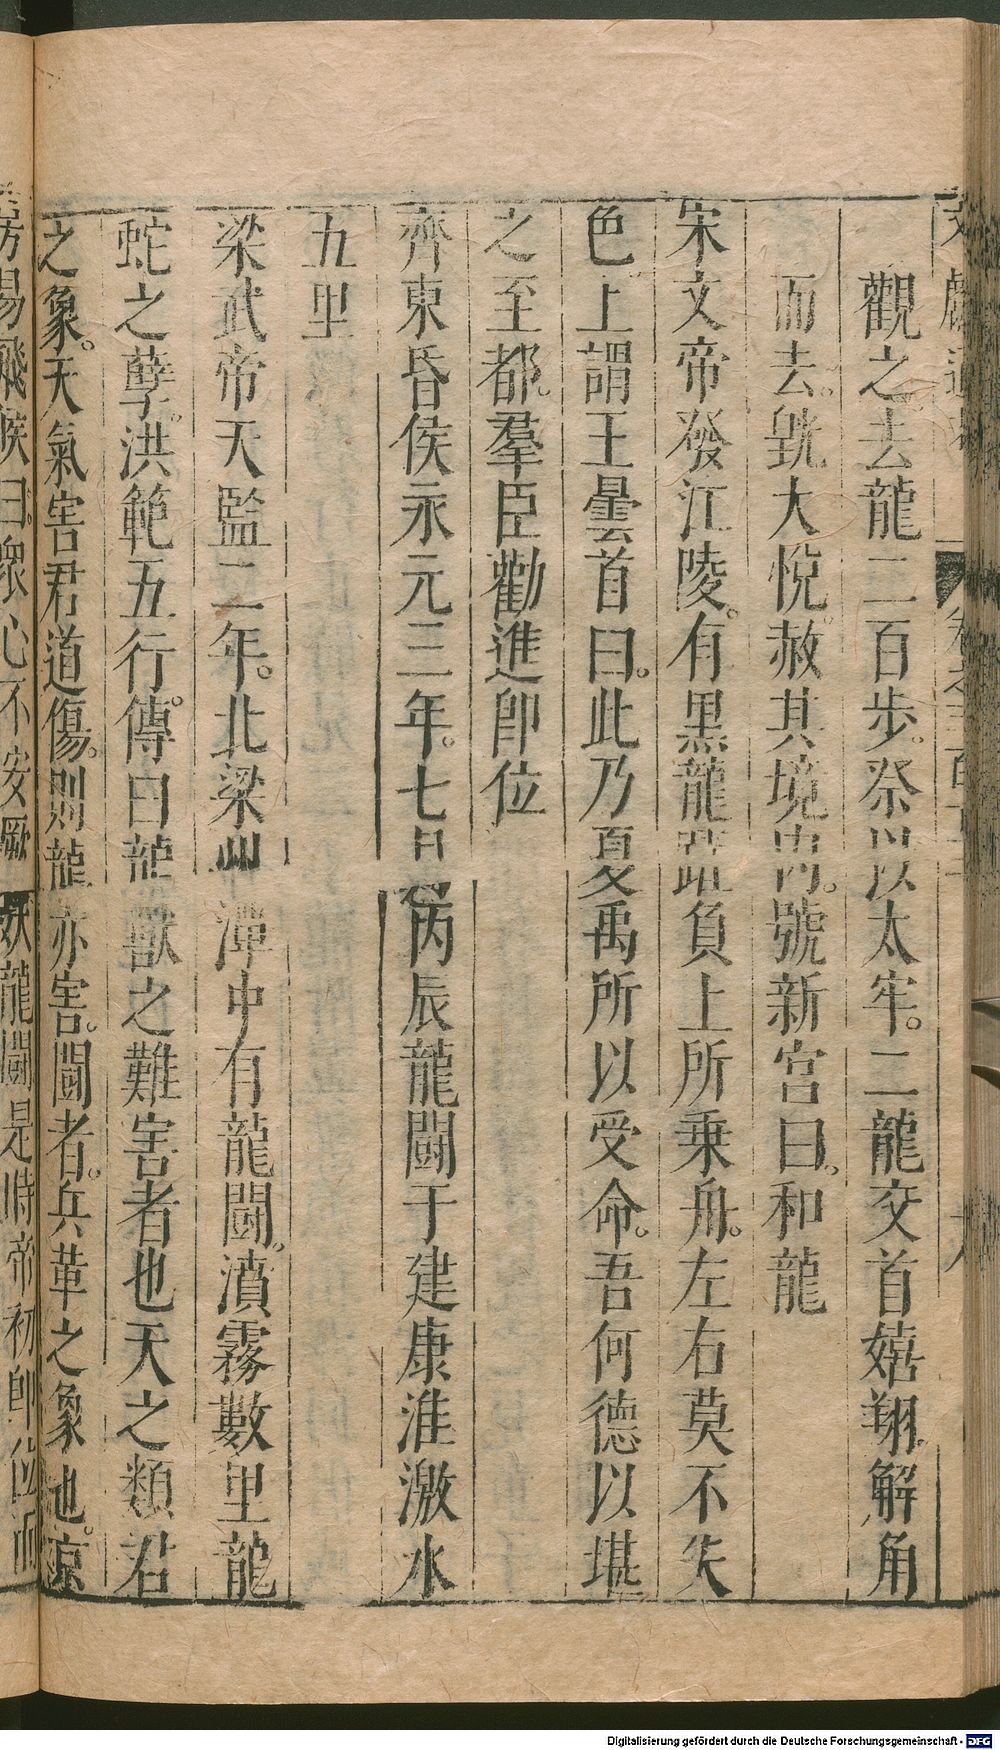 觀之去龍二百步。祭以太牢。二龍交首嬉翔。解角
而去。皝大悅。赦其境內。號新宮曰。和龍
宋文帝發江陵。有黑龍躍負上所乗舟。左右莫不失
色。上謂王曇首曰。此乃夏禹所以受命。吾何德以堪
之至都。羣臣勸進即位
齊東昏侯永元三年。七月丙辰龍鬪于建康淮激水
五里
梁武帝天監二年。北梁州潭中有龍鬪。濆霧數里龍
蛇之孽。洪範五行。傳曰龍獸之難害者也天之類君
之象。天氣害君道傷。則龍亦害。鬪者。兵革之象也。京
房易飛候曰。眾心不安厥妖龍鬪是時帝初即位而
Digitalisierung gefördert durch die Deutsche Forschungsgemeinschaft - DFG